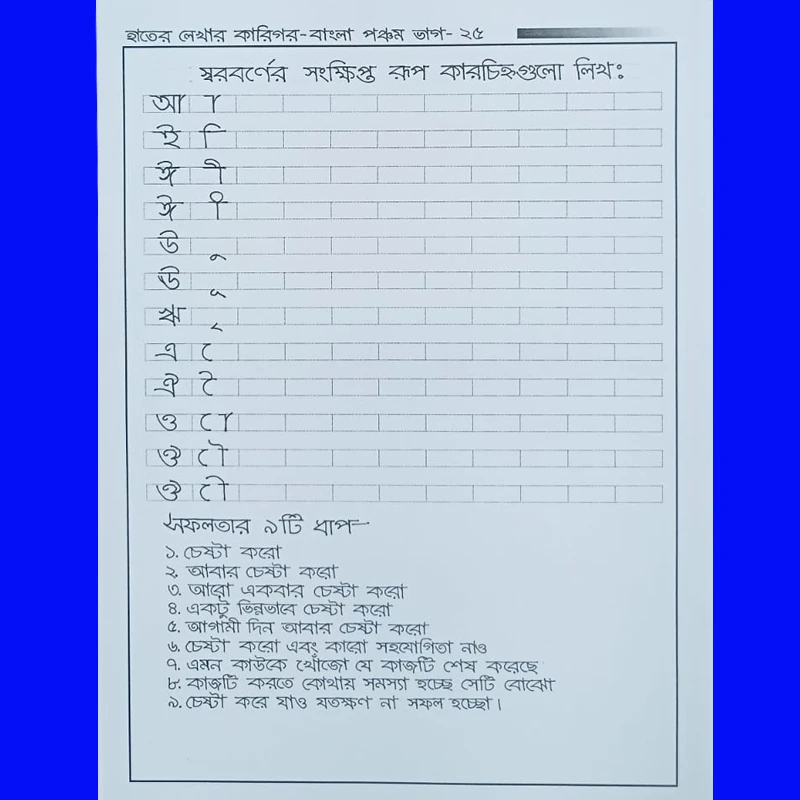 হাতের লেখার কারিগর-বাংলা পঞ্চম ভাগ- ২৫
স্বরবর্ণের সংক্ষিপ্ত রূপ কারচিহ্নগুলো লিখ:
আ া
ই ি
ঈ ী
ঈ ী
উ ু
ঊ ূ
ঋ ৃ
এ ে
ঐ ৈ
ও ো
ঔ ৌ
ঔ ৌ
সফলতার ৯টি ধাপ-
১. চেষ্টা করো
২. আবার চেষ্টা করো
৩. আরো একবার চেষ্টা করো
৪. একটু ভিন্নভাবে চেষ্টা করো
৫. আগামী দিন আবার চেষ্টা করো
৬. চেষ্টা করো এবং কারো সহযোগিতা নাও
৭. এমন কাউকে খোঁজো যে কাজটি শেষ করেছে
৮. কাজটি করতে কোথায় সমস্যা হচ্ছে সেটি বোঝো
৯. চেষ্টা করে যাও যতক্ষণ না সফল হচ্ছো।